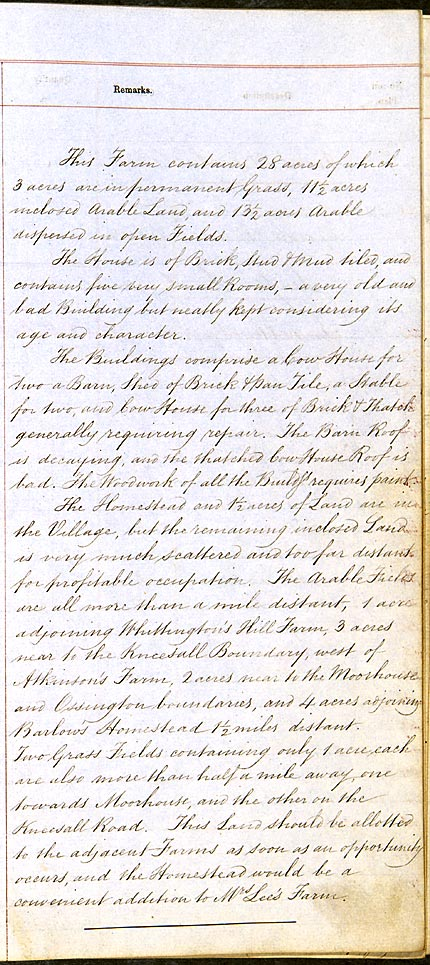 Remarks.
This Farm contains 28 acres of which
3 acres are in permanent Grass, 11½ acres
inclosed Arable Land, and 13½ acres Arable
dispersed in open Fields.
The House is of Brick, Stud & Mud tiled, and
contains five very small Rooms, – a very old and
bad Building but neatly kept considering its
age and character.
The Buildings comprise a Cow House for
two a Barn, Shed of Brick & Pan Tile, a Stable
for two, and Cow House for three of Brick & Thatch
generally requiring repair. The Barn Roof
is decaying, and the thatched Cow House Roof is
bad. The Woodwork of all the Buildgs requires paint.
The Homestead and 1½ acres of Land are in
the Village, but the remaining inclosed Land
is very much scattered and too far distant
for profitable occupation. The Arable Fields
are all more than a mile distant, 1 acre
adjoining Whittington's Hill Farm, 3 acres
near to the Kneesall Boundary, west of
Atkinson's Farm, 2 acres near to the Moorhouse
and Ossington boundaries, and 4 acres adjoining
Barlow's Homestead 1½ miles distant.
Two Grass Fields containing only 1 acre, each
are also more than half a mile away, one
towards Moorhouse, and the other on the
Kneesall Road. This Land should be allotted
to the adjacent Farms as soon as an opportunity
occurs, and the Homestead would be a
convenient addition to Mrs Lee's Farm.